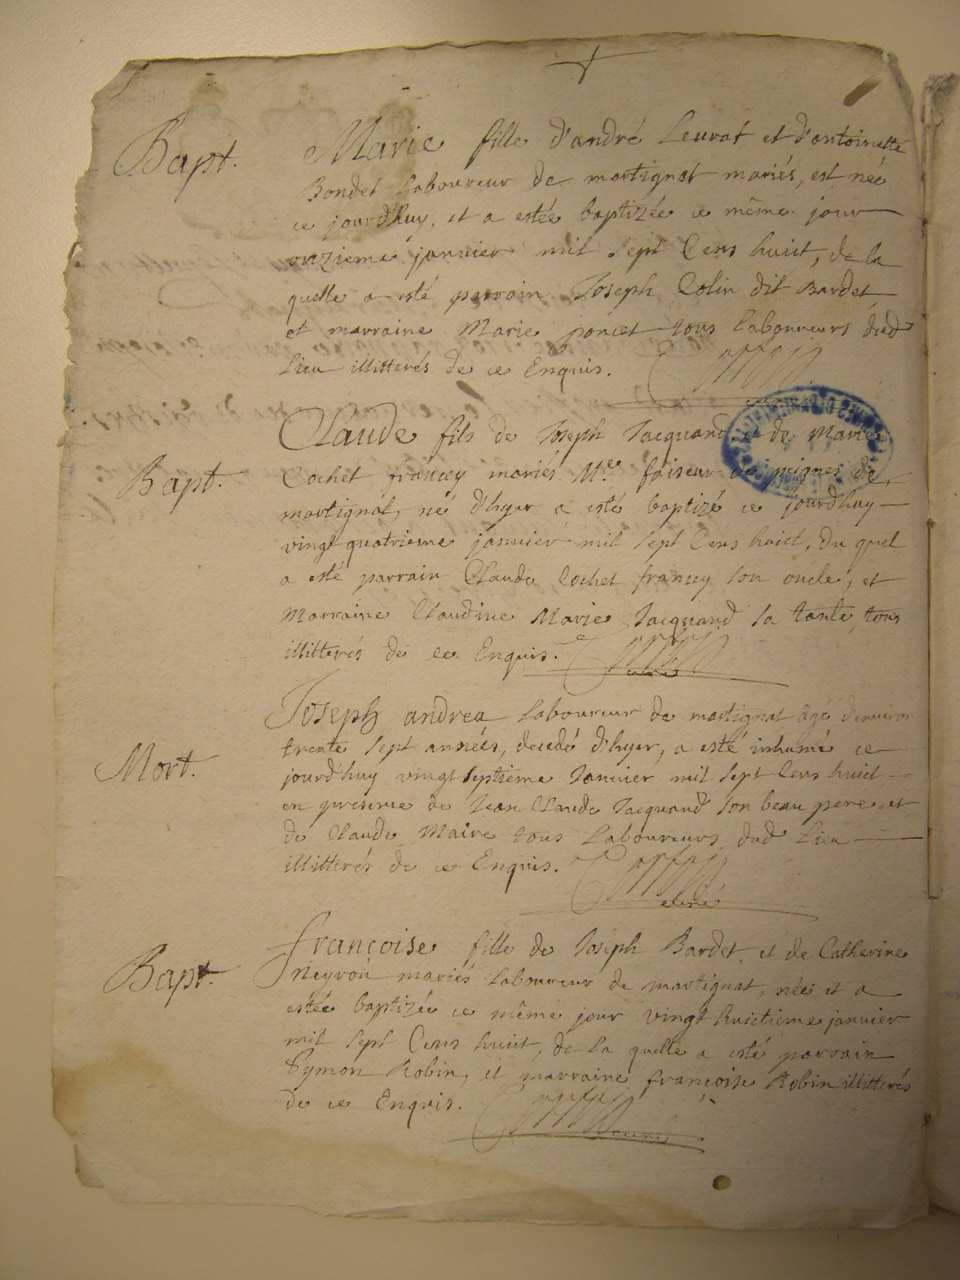 Bapt. Marie fille d'andré Leurat et d'antoinette
Bondet Laboureur de martignat mariés, est née
ce jourd'huy, et a estée baptizée ce même jour
onzieme janvier mil sept Cens huict, de la
quelle a esté parrain Joseph Colin dit Bardet
et marraine Marie poncet tous laboureurs dud
Lieu illitterés de ce Enquis.
Bapt. Claude fils de Joseph Jacquand et de Marie
Cochet francey mariés Mre faiseur de peignes de
martignat, né d'hyer a esté baptizé ce jourd'huy
vingt quatrieme janvier mil sept Cens huict, du quel
a esté parrain Claude Cochet francey son oncle, et
Marraine Claudine Marie Jacquand sa tante, tous
illitterés de ce Enquis.
curé
Mort. Joseph andrea laboureur de martignat âgé d'environ
trente sept années, decedé d'hyer, a esté inhumé ce
jourd'huy vingt septieme Janvier mil sept Cens huict
en presence de Jean Claude Jacquand son beau pere et
de Claude Maire tous Laboureurs dud Lieu
illitterés de ce Enquis.
curé
Bapt. françoise fille de Joseph Bardet, et de Catherine
Neyrou mariés laboureur de martignat, née et a
estée baptizée ce même jour vingt huictieme janvier
mil sept Cens huict, de la quelle a esté parrain
Symon Robin, et marraine françoise Robin illitterés
de ce Enquis.
curé